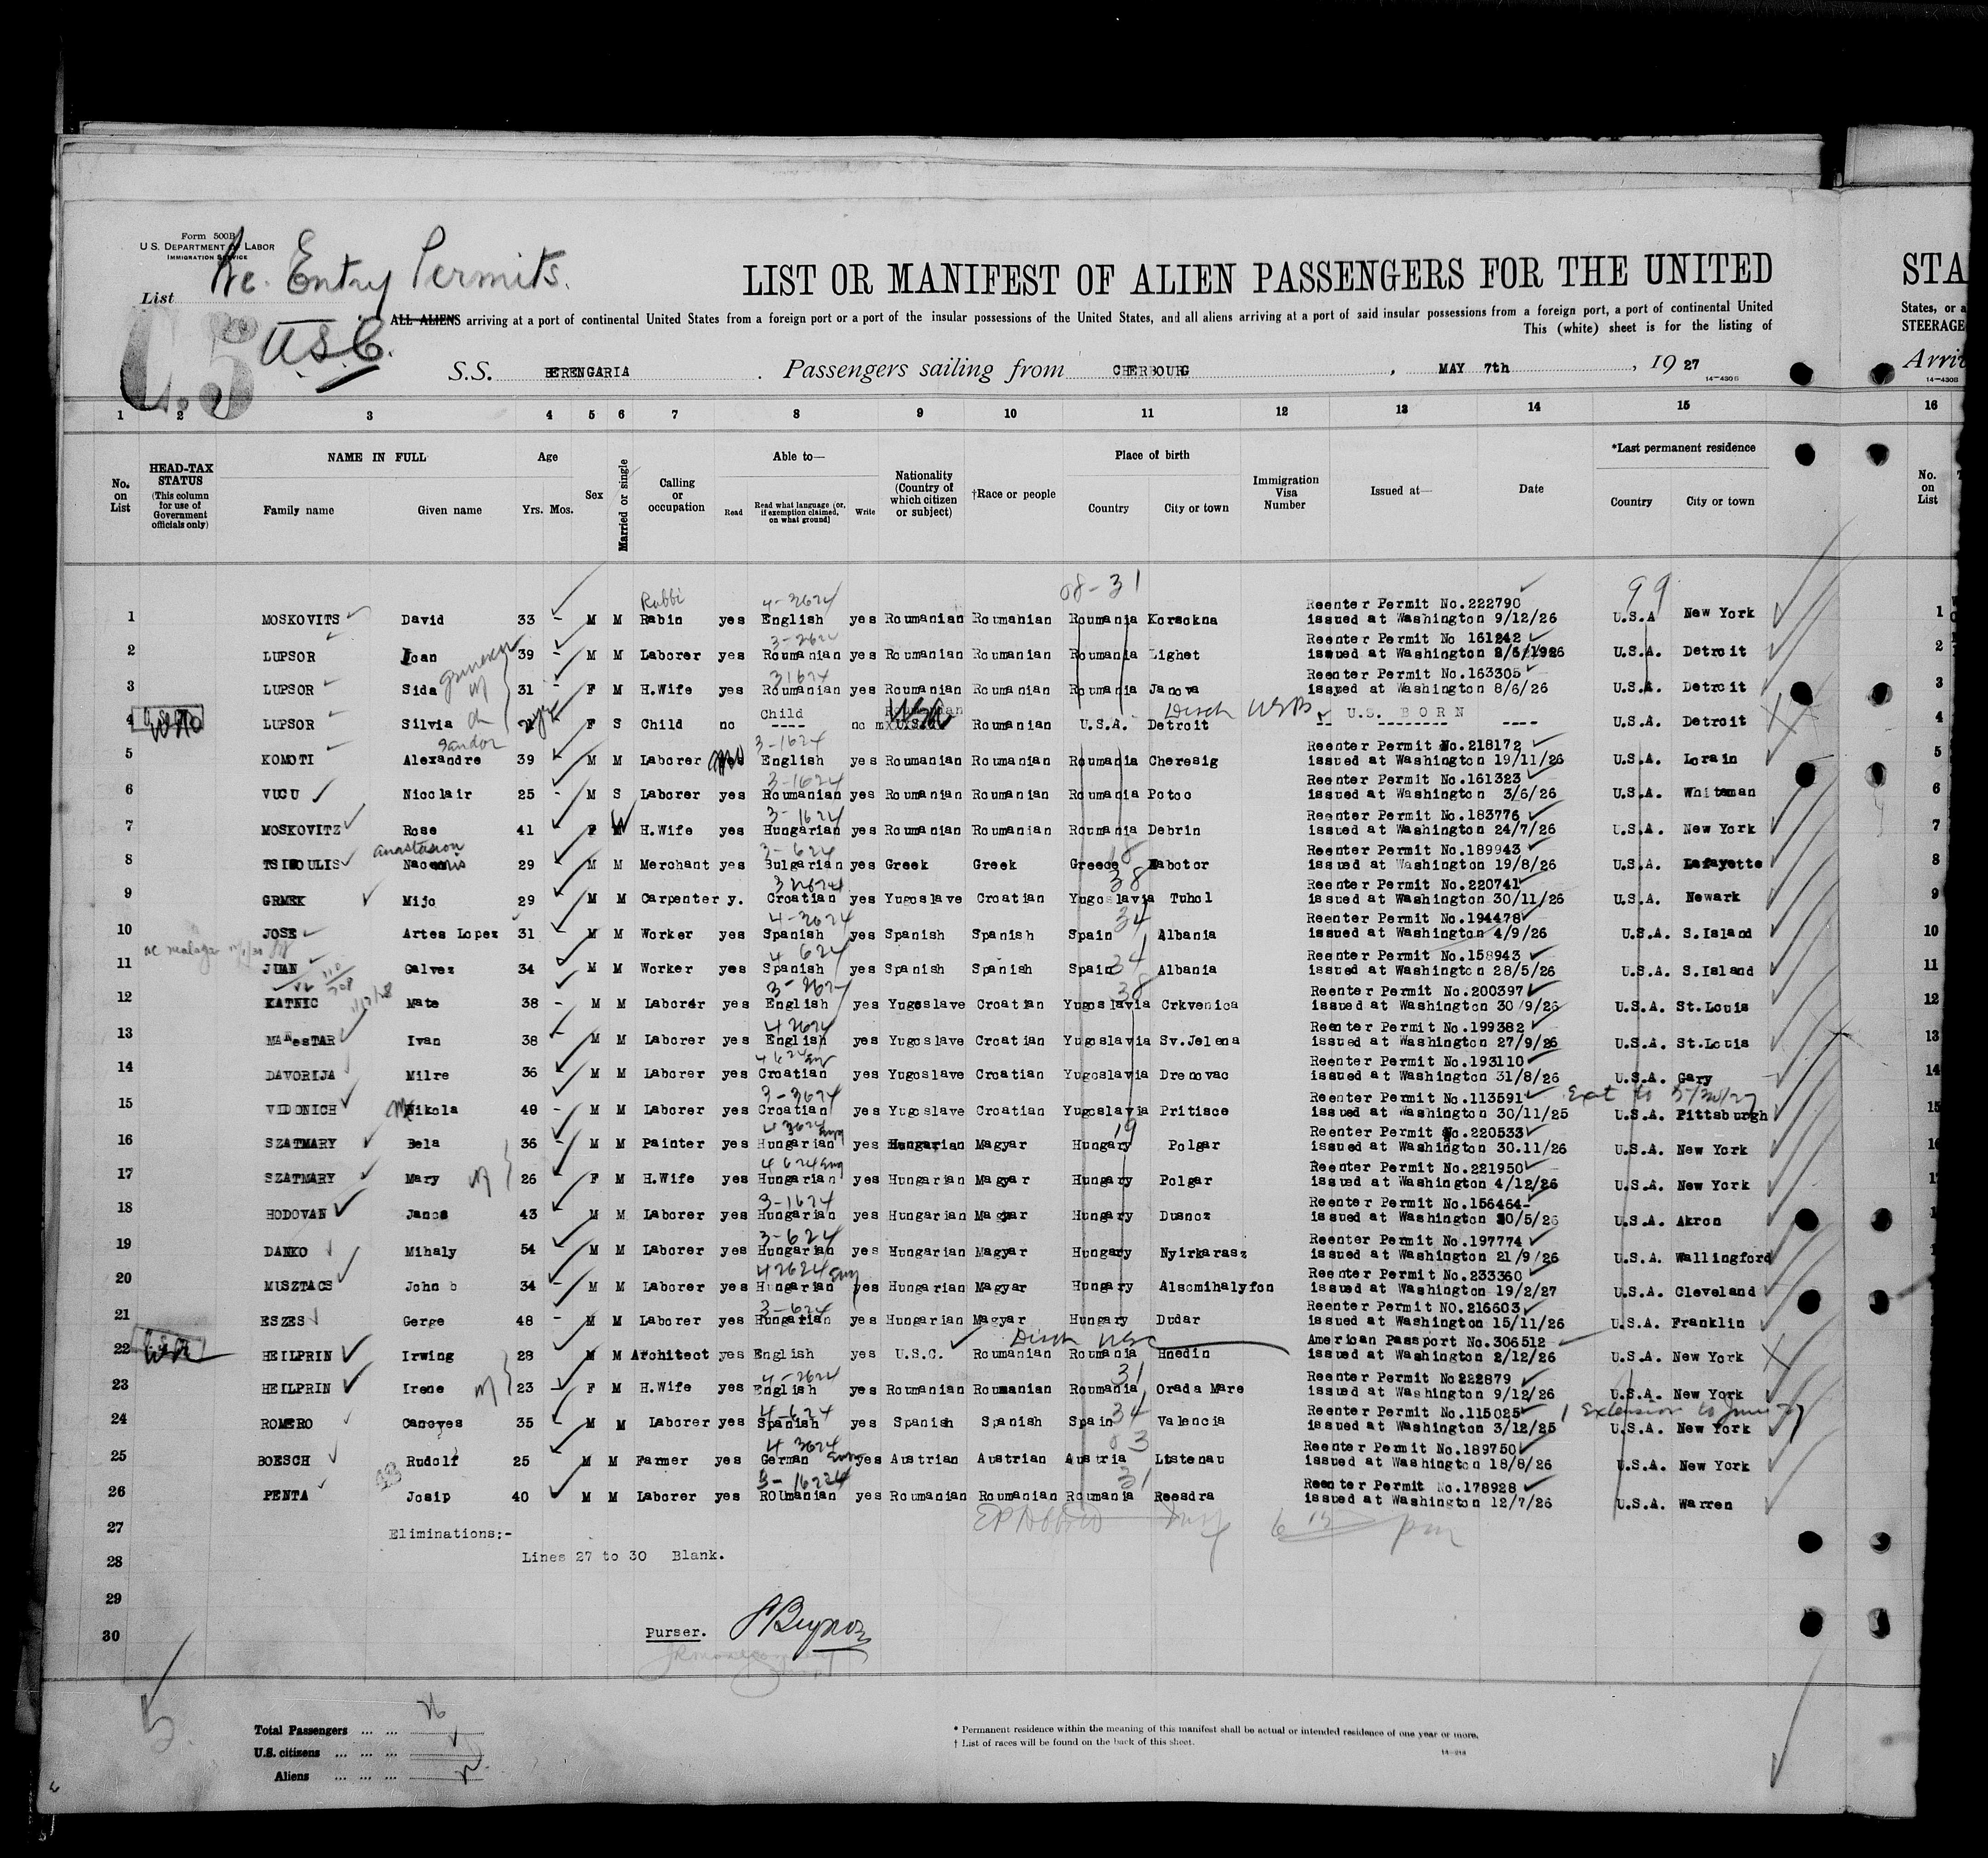 Form 500B
U.S. DEPARTMENT OF LABOR
IMMIGRATION SERVICE
Re. Entry Permits.
List
U.S.C.
LIST OR MANIFEST OF ALIEN PASSENGERS FOR THE UNITED
STA
ALL ALIENS arriving at a port of continental United States from a foreign port or a port of the insular possessions of the United States, and all aliens arriving at a port of said insular possessions from a foreign port, a port of continental United
States, or a
This (white) sheet is for the listing of
STEERAGE
S.S. BERENGARIA. Passengers sailing from CHERBOURG, MAY 7th, 19 27
14-4306
Arri
14-430B
1 2 3 4 5 6 7 8 9 10 11 12 13 14 15 16
No. on List
HEAD-TAX STATUS (This column for use of Government officials only)
NAME IN FULL
Family name Given name
Age
Yrs. Mos.
Sex
Married or single
Calling or occupation
Able to—
Read
Read what language (or, if exemption claimed, on what ground)
Write
Nationality (Country of which citizen or subject)
†Race or people
Place of birth
Country City or town
Immigration Visa Number
Issued at—
Date
*Last permanent residence
Country City or town
No. on List
08-31 99
Rabbi 4-3624 Reenter Permit No.222790
1 MOSKOVITS David 33 - M M Rabin yes English yes Roumanian Roumanian Roumania Korackna issued at Washington 9/12/26 U.S.A New York 1
3-2624 Reenter Permit No 161242
2 LUPSOR Ioan 39 - M M Laborer yes Roumanian yes Roumanian Roumanian Roumania Lighet issued at Washington 8/6/1926 U.S.A. Detroit 2
31624 Reenter Permit No.163305
3 LUPSOR Sida 31 - F M H.Wife yes Roumanian yes Roumanian Roumanian Roumania Janova issued at Washington 8/6/26 U.S.A. Detroit 3
Child Disch USB U.S. BORN
4 LUPSOR Silvia F S Child no ---- no Roumanian U.S.A. Detroit -- --------- ---- U.S.A. Detroit 4
Sandor 3-1624 Reenter Permit No.218172
5 KOMOTI Alexandre 39 M M Laborer English yes Roumanian Roumanian Roumania Cheresig issued at Washington 19/11/26 U.S.A. Lorain 5
3-1624 Reenter Permit No.161323
6 VUCU Nicolair 25 - M S Laborer yes Roumanian yes Roumanian Roumanian Roumania Potoo issued at Washington 3/6/26 U.S.A. Whiteman 6
3-1624 Reenter Permit No.183776
7 MOSKOVITZ Rose 41 F W H.Wife yes Hungarian yes Roumanian Roumanian Roumania Debrin issued at Washington 24/7/26 U.S.A. New York 7
3-624 Reenter Permit No.189943
8 TSIMOULIS 29 M M Merchant yes Bulgarian yes Greek Greek Greece Mabotor issued at Washington 19/8/26 U.S.A. Lafayette 8
32624 38 Reenter Permit No.220741
9 GRMEK Mijo 29 M M Carpenter y. Croatian yes Yugoslave Croatian Yugoslavia Tuhol issued at Washington 30/11/26 U.S.A. Newark 9
4-3624 34 Reenter Permit No.194478
10 JOSE Artes Lopez 31 M M Worker yes Spanish yes Spanish Spanish Spain Albania issued at Washington 4/9/26 U.S.A. S.Island 10
4 624 34 Reenter Permit No.158943
11 JUAN Galvez 34 M M Worker yes Spanish yes Spanish Spanish Spain Albania issued at Washington 28/5/26 U.S.A. S.Island 11
3-2624 38 Reenter Permit No.200397
12 KATNIC Mate 38 - M M Laborer yes English yes Yugoslave Croatian Yugoslavia Crkvenica issued at Washington 30/9/26 U.S.A. St.Louis 12
4 2624 Reenter Permit No.199382
13 MANesTAR Ivan 38 M M Laborer yes English yes Yugoslave Croatian Yugoslavia Sv.Jelena issued at Washington 27/9/26 U.S.A. St.Louis 13
4 624 Eng Reenter Permit No.193110
14 DAVORIJA Milre 36 M M Laborer yes Croatian yes Yugoslave Croatian Yugoslavia Drenovac issued at Washington 31/8/26 U.S.A. Gary 14
3-3624 Reenter Permit No.113591 Ext to 5/30/27
15 VIDONICH Nikola 40 - M M Laborer yes Croatian yes Yugoslave Croatian Yugoslavia Pritisce issued at Washington 30/11/25 U.S.A. Pittsburgh 15
4 3624 Eng 19 Reenter Permit No.220533
16 SZATMARY Bela 36 - M M Painter yes Hungarian yes Hungarian Magyar Hungary Polgar issued at Washington 30.11/26 U.S.A. New York
4 624 Eng Reenter Permit No.221950
17 SZATMARY Mary 26 F M H.Wife yes Hungarian yes Hungarian Magyar Hungary Polgar issued at Washington 4/12/26 U.S.A. New York
3-1624 Reenter Permit No.156464-
18 HODOVAN Janos 43 M M Laborer yes Hungarian yes Hungarian Magyar Hungary Dusnoz issued at Washington 20/5/26 U.S.A. Akron
3-624 Reenter Permit No.197774
19 DANKO Mihaly 54 M M Laborer yes Hungarian yes Hungarian Magyar Hungary Nyirkarasz issued at Washington 21/9/26 U.S.A. Wallingford
4 2624 Eng Reenter Permit No.233360
20 MUSZTACS John 34 - M M Laborer yes Hungarian yes Hungarian Magyar Hungary Alsomihalyfon issued at Washington 19/2/27 U.S.A. Cleveland
3-624 Reenter Permit NO.216603
21 ESZES Gerge 48 - M M Laborer yes Hungarian yes Hungarian Magyar Hungary Dudar issued at Washington 15/11/26 U.S.A. Franklin
Disch USC American Passport No.306512
22 HEILPRIN Irwing 28 M M Architect yes English yes U.S.C. Roumanian Roumania Hnedin issued at Washington 2/12/26 U.S.A. New York
4-2624 31 Reenter Permit No 222879
23 HEILPRIN Irene 23 F M H.Wife yes English yes Roumanian Roumanian Roumania Orada Mare issued at Washington 9/12/26 U.S.A. New York
4-624 34 Reenter Permit No.115025 Extension to June 27
24 ROMERO Canoves 35 M M Laborer yes Spanish yes Spanish Spanish Spain Valencia issued at Washington 3/12/25 U.S.A. New York
4 3624 Eng 03 Reenter Permit No.189750
25 BOESCH Rudolf 25 M M Farmer yes German yes Austrian Austrian Austria Lustenau issued at Washington 18/8/26 U.S.A. New York
31 Reenter Permit No.178928
26 PENTA Josip 40 M M Laborer yes ROUmanian yes Roumanian Roumanian Roumania Reesdra issued at Washington 12/7/26 U.S.A. Warren
27 Eliminations:-
28 Lines 27 to 30 Blank.
29
30 Purser.
5
Total Passengers ... ... 26
U.S. citizens ... ... ...
Aliens ... ... ...
* Permanent residence within the meaning of this manifest shall be actual or intended residence of one year or more.
† List of races will be found on the back of this sheet.